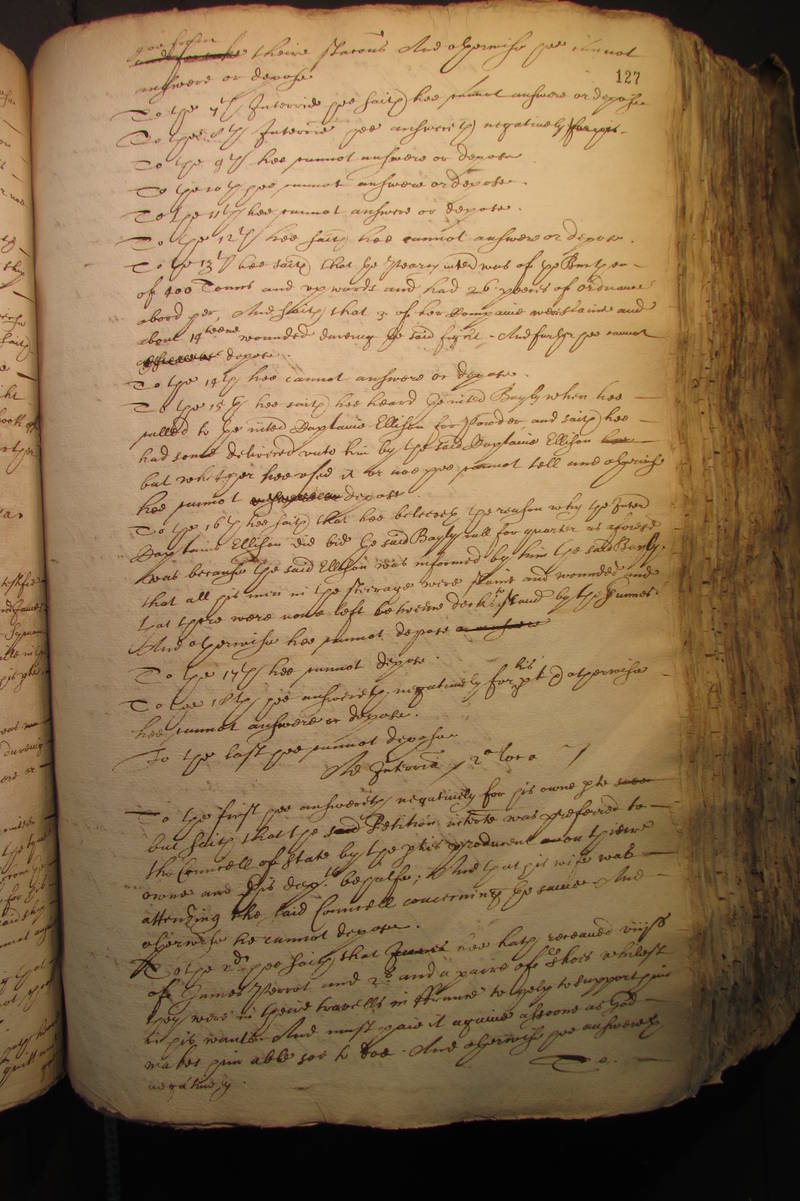 theire stacons And otherwise hee cannot
127
answere or depose
To the 7th Interrie hee saith hee cannot answere or depose
To the 8th Interrie hee answereth negatively
To the 9th hee cannot answere or depose
To the 10th hee cannot answere or depose.
To the 11th hee cannot answere or depose.
To the 12th hee saith hee cannot answere or depose.
To the 13th hee saith that the was of the Burthen
of 400 Tonns and upwards and had 26 peeces of ordnance
abord her, And saith that 3 of her Companie were slaine and
about 14 beene wounded during the said fight. And further hee cannot
depose.
To the 14th hee cannot answere or depose.
To the 15th hee saith hee heard the Bayly when hee
called to the Captaine Ellison for Powder and saith hee
had some delivered unto him by the said Captaine Ellison
but whither hee used it or noe hee cannot tell and otherwise
hee cannot depose.
To the 16th hee saith that hee beleeveth the reason why the
Captaine Ellison did bid the said Bayly call for quarter as
was because the said Ellison was informed by him the said Bayly,
that all his men in the steirage were slaine and wounded and
that there were none left betweene decks to stand by the Gunnes.
And otherwise hee cannot depose
To the 17th hee cannot depose.
To the 18th hee answereth negatively for his pte & otherwise
hee cannot answere or depose.
To the last hee cannot depose
Ad Interria 2o loco
To the first hee answereth negatively for his owne pte
but saith that the Petition was preferred to
the Councell of State by the producent on theire
owne and his behalfe, And that his wife was
attending the said Councell concerning the same And
otherwise he cannot depose.
To the 2d hee saith that hee hath receaved
of James Perrot and 2s and a paire of shoes whilest
they were in theire travells in to help to support him
in his wants And must paie it againe assoone as God
makes him able soe to doe. And otherwise hee answereth
negatively.
To.